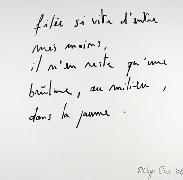 filée si vite d'entre
mes mains,
il n'en reste qu'une
brûlure, au milieu,
dans la paume.